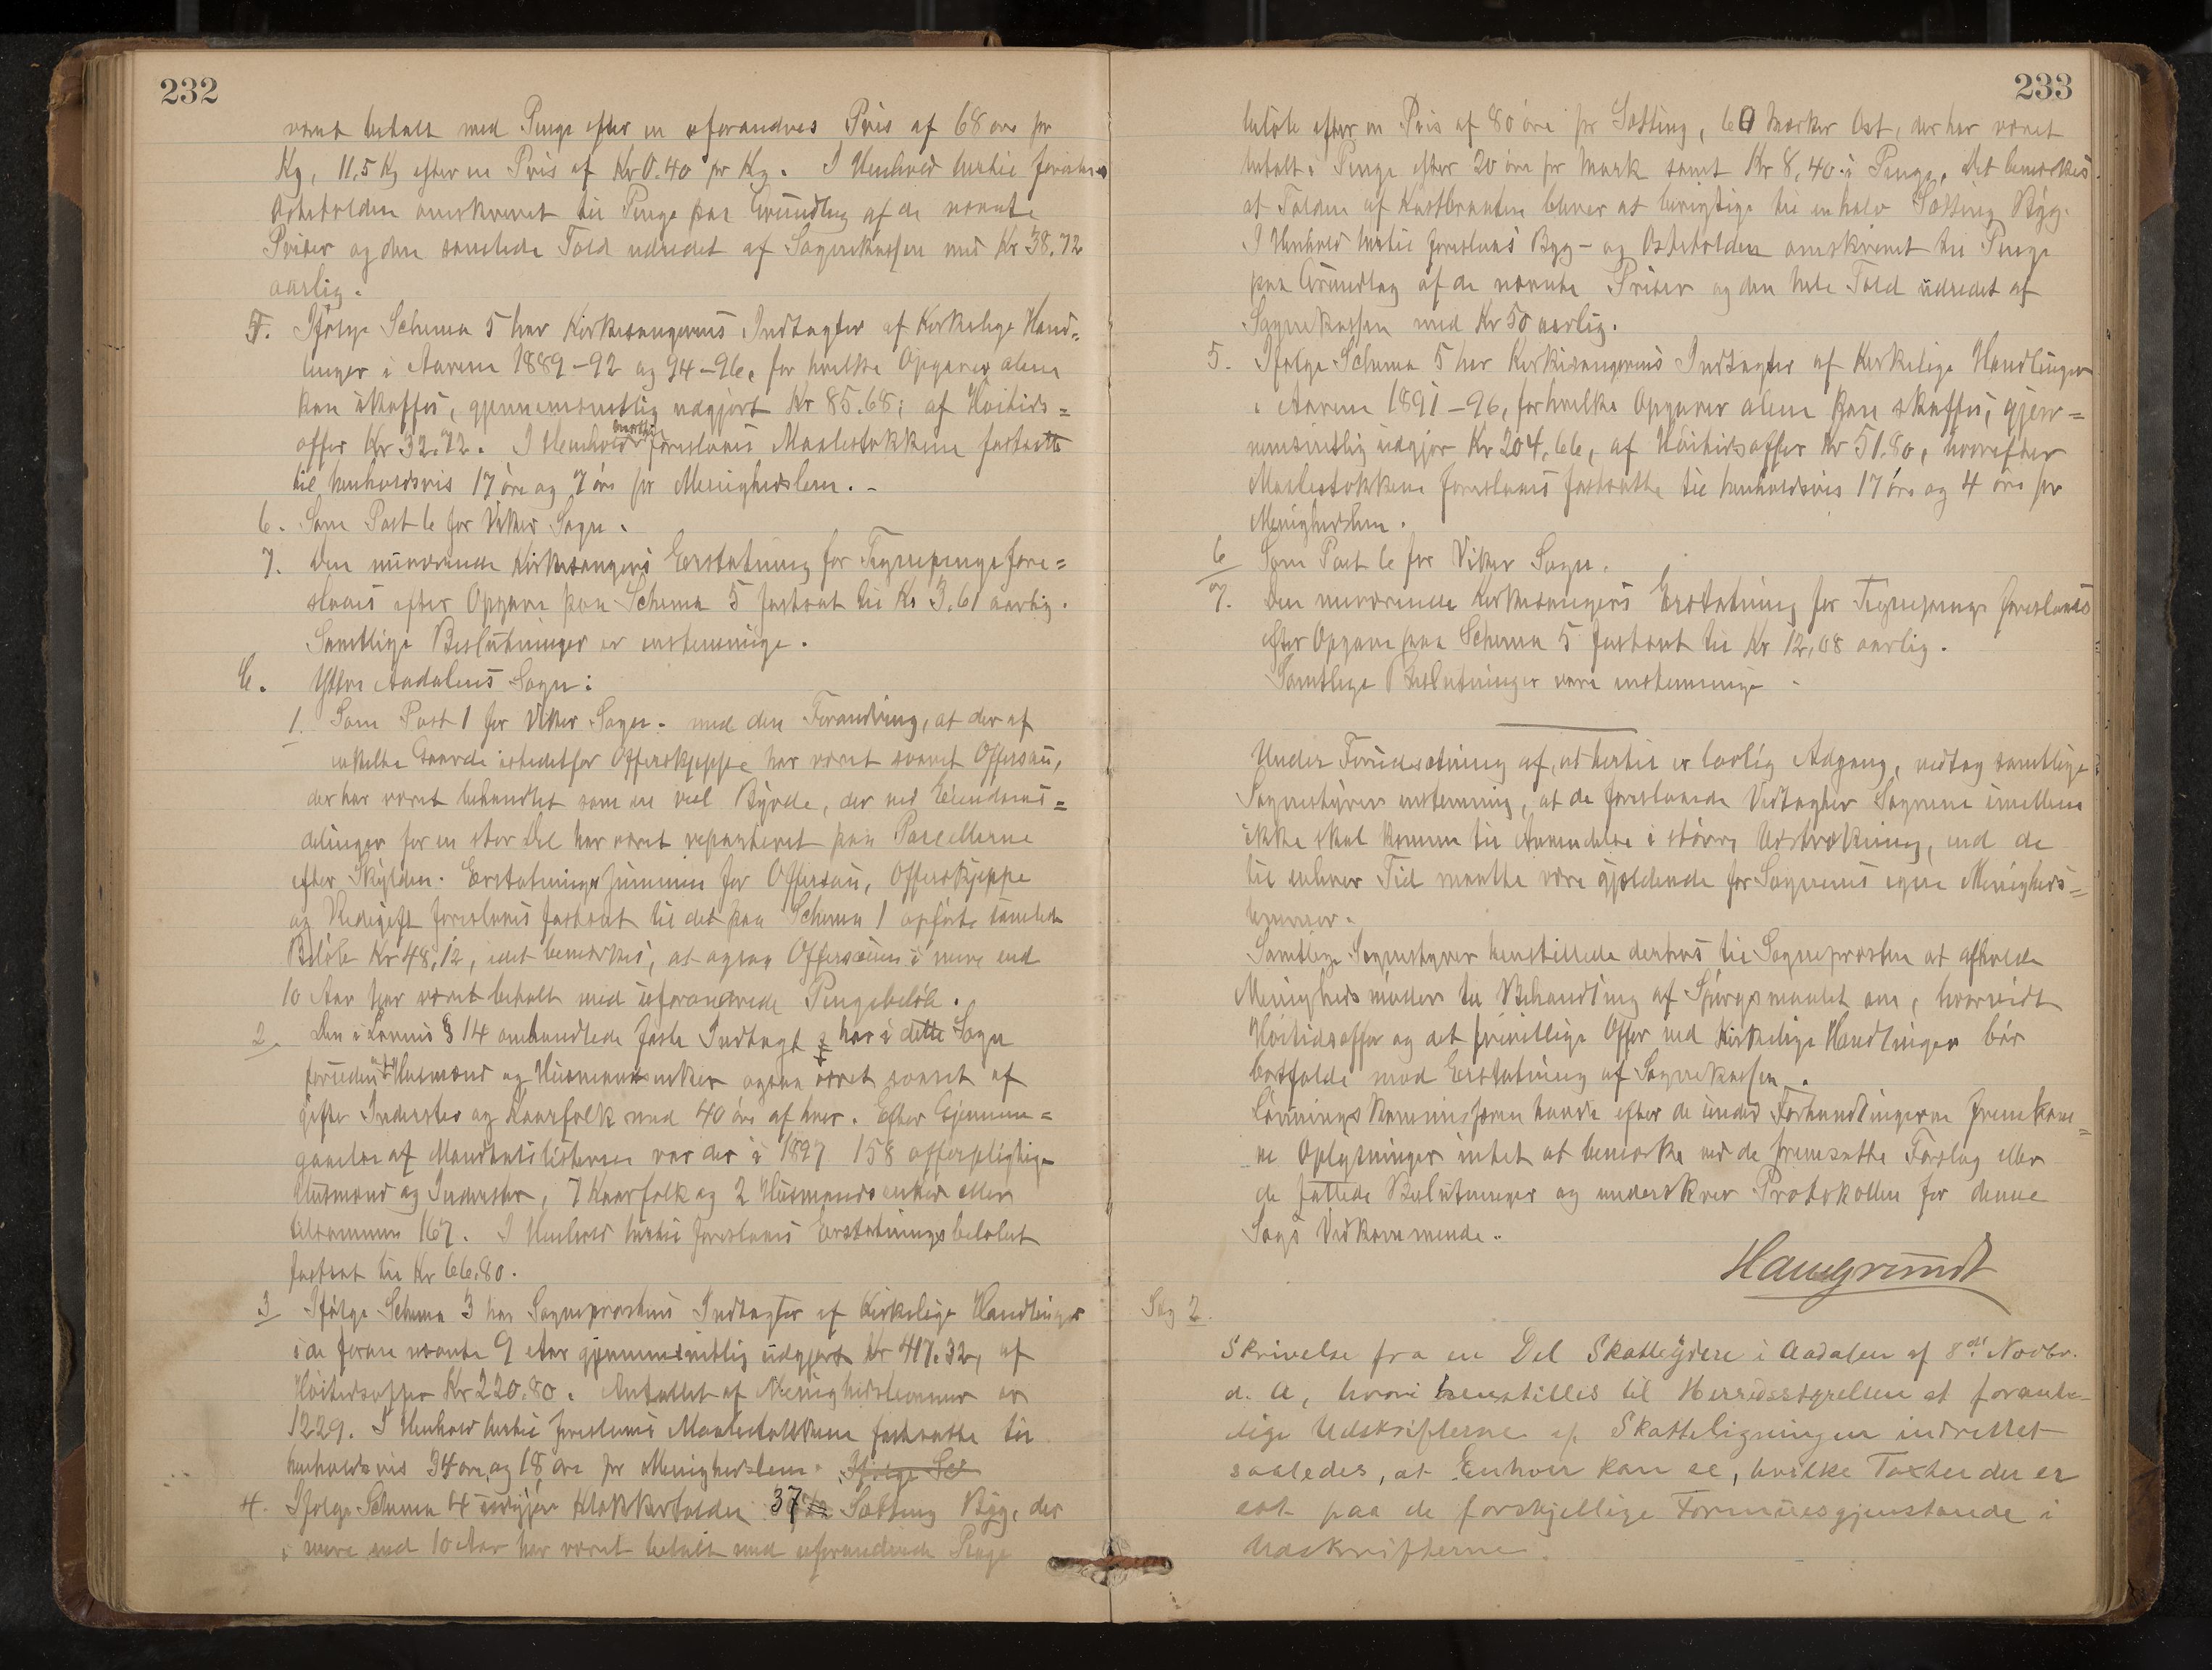 232
været betalt med Penge efter en uforandres Pris af 68 øre pr
Kg, 11,5 Kg efter en Pris af Kr 0.40 pr Kg. I Henhold hertil foreslaaes
Osteholden omskrevet til Penge paa Grundlag af de nævnte
Priser og den samlede Told udredet af Sognekassen med Kr 38.72
aarlig.
5. Ifølge Schema 5 har Kirkesangerens Indtægter af Kirkelige Hand-
linger i Aarene 1889-92 og 94-96, for hvilke Opgaver alene
kan skaffes, gjennemsnitlig udgjort Kr 85.68; af Høitids-
offer Kr 32.72. I Henhold hertil foreslaaes Maalestokken fastsatte
til henholdsvis 17 øre og 7 øre pr Menighedslem. -
6. Som Post 6 for Viker Sogn.
7. Den nuværende Kirkesangers Erstatning for Tegnepenge fore-
slaaes efter Opgave paa Schema 5 fastsat til Kr 3.61 aarlig.
Samtlige Beslutninger er enstemmige.
C. Ytre Aadalens Sogn:
1. Som Post 1 for Viker Sogn. med den Forandring, at der af
enkelte Gaarde istedetfor Offerskjeppe har været svaret Offersau,
der har været behandlet som en reel Byrde, der ved Eiendoms-
delinger for en stor Del har været repartieret paa Parcellerne
efter Skylden. Erstatningssummen for Offersau, Offerskjeppe
og Vedegift foreslaaes fastsat til det paa Schema 1 opførte samlede
Beløb Kr 48,12, idet bemærkes, at ogsaa Offersauen i mere end
10 Aar har været betalt med uforandrede Pengebeløb.
2. Den i Lovens § 14 omhandlede faste Indtægt har i dette Sogn
foruden af Husmænd og Husmandsenker ogsaa været svaret af
gifte Inderster og Kaarfolk med 40 øre af hver. Efter Gjennem-
gaaelse af Mandtalslisterne var der i 1897 158 offerpligtige
Husmænd og Inderster, 7 Kaarfolk og 2 Husmandsenker eller
tilsammen 167. I Henhold hertil foreslaaes Erstatningsbeløbet
fastsat til Kr 66.80.
3 Ifølge Schema 3 har Sognepræstens Indtægter af Kirkelige Handlinger
i de foran nævnte 9 Aar gjennemsnitlig udgjort Kr 417.32, af
Høitidsoffer Kr 220.80. Antallet af Menighedslemmer er
1229. I Henhold hertil foreslaaes Maalestokkene fastsatte til
henholdsvis 34 øre og 18 øre pr Menighedslem. Ifølge Sch
4. Ifølge Schema 4 udgjør Klokkertolden 37 Sætting Byg, der
i mere end 10 Aar har været betalt med uforandrede Penge
233
beløb efter en Pris af 80 øre pr Sætting, 60 Marker Ost, der har været
betalt i Penge efter 20 øre pr Mark samt Kr 8,40 i Penge. Det bemærkes
at Tolden af Kastbraaten bliver at berigtige til en halv Sætting Byg.
I Henhold hertil foreslaaes Byg- og Ostetolden omskrevet til Penge
paa Grundlag af de nævnte Priser og den hele Told udredet af
Sognekassen med Kr 50 aarlig.
5. Ifølge Schema 5 har Kirkesangerens Indtægter af Kirkelige Handlinger
i Aarene 1891-96, for hvilke Opgaver alene kan skaffes, gjen-
nemsnitlig udgjør Kr 204,66, af Høitidsoffer Kr 51.80, hvorefter
Maalestokkene foreslaaes fastsatte til henholdsvis 17 øre og 4 øre pr
Menighedslem.
6 Som Post 6 for Viker Sogn.
og
7. Den nuværende Kirkesangers Erstatning for Tegnepenge foreslaaes
efter Opgave paa Schema 5 fastsat til Kr 12,08 aarlig.
Samtlige Beslutninger vare enstemmige -
Under Forudsætning af, at hertil er lovlig Adgang, vedtog samtlige
Sognestyrer enstemmig, at de foreslaaede Vedtægter Sognene imellem
ikke skal komme til Anvendelse i større Udstrækning, end de
til enhver Tid maatte være gjældende for Sognenes egne Menigheds-
lemmer.
Samtlige Sognestyrer henstillede derhos til Sognepræsten at afholde
Menighedsmøder til Behandling af Spørgsmaalet om, hvorvidt
Høitidsoffer og det frivillige Offer ved Kirkelige Handlinger bør
bortfalde mod Erstatning af Sognekassen.
Lønningskommissionen havde efter de under Forhandlingerne fremkom-
ne Oplysninger intet at bemærke ved de fremsatte Forslag eller
de fattede Beslutninger og underskrev Protokollen for denne
Sags Vedkommende.
Haugrundt
Sag 2.
Skrivelse fra en Del Skatteydere i Aadalen af 8de Novbr.
d. A, hvori henstilles til Herredsstyrelsen at foranle-
dige Udskrifterne af Skatteligningen indrettet
saaledes, at Enhver kan se, hvilke Taxter der er
sat paa de forskjellige Formuesgjenstande i
Udskrifterne.